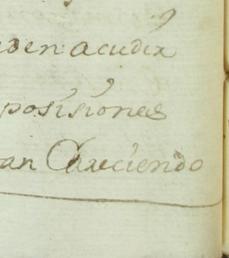 den acudir
posisiones
an Careciendo